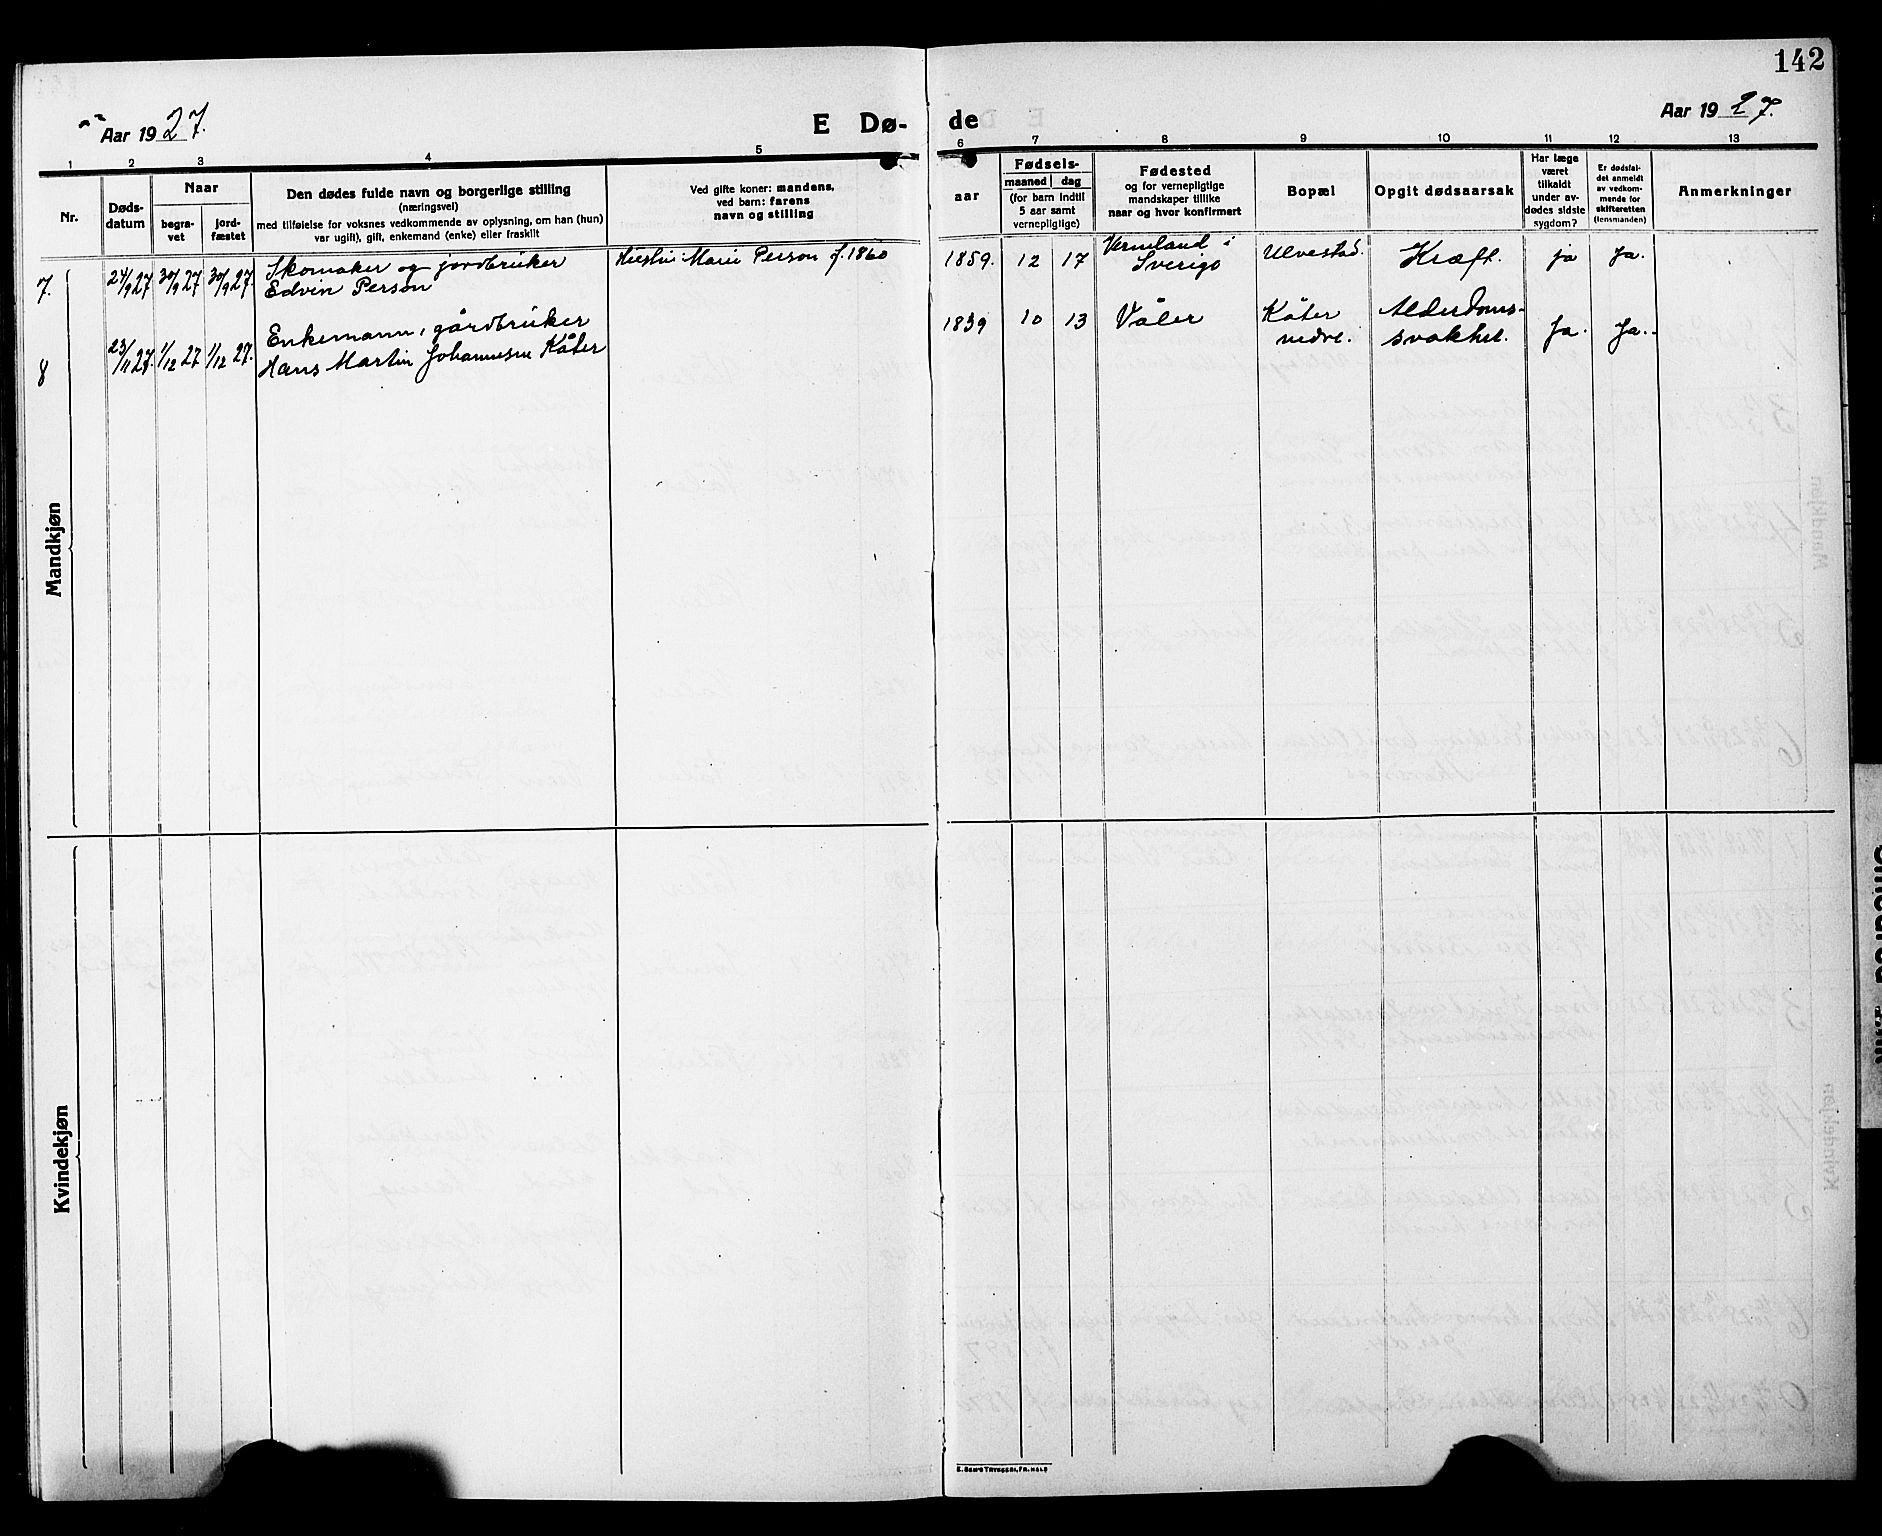 142
Aar 1927.
E Dø-
de
Aar 1927.
1 2 3 4 5 6 7 8 9 10 11 12 13
Nr.
Døds-
datum
Naar
begra-
vet
jord-
fæstet
Den dødes fulde navn og borgerlige stilling
(næringsvei)
med tilføielse for voksnes vedkommende av oplysning, om han (hun)
var ugift), gift, enkemand (enke) eller fraskilt
Ved gifte koner: mandens,
ved barn: farens
navn og stilling
aar
Fødsels-
maaned dag
(for barn indtil
5 aar samt
vernepligtige)
Fødested
og for vernepligtige
mandskaper tillike
naar og hvor konfirmert
Bopæl
Opgit dødsaarsak
Har læge
været
tilkaldt
under av-
dødes sidste
sygdom?
Er dødsfal-
det anmeldt
av vedkom-
mende for
skifteretten
(lensmanden)
Anmerkninger
Mandkjøn
7. 24/9 27 30/9 27 30/9 27. Skomaker og jordbruker
Edvin Person
Marie Person f. 1860
1859. 12 17 Vermland i
Sverige
Ulvestad. Kræft. ja Ja.
8 23/11 27. 1/12 27 1/12 27. Enkemann, gårdbruker
Hans Martin Johannesen Kåter
1839 10 13 Våler Kåter
nedre.
Alderdoms-
svakhet.
Ja. Ja.
Kvindekjøn
E. Sem's Trykkeri, Fr.hald